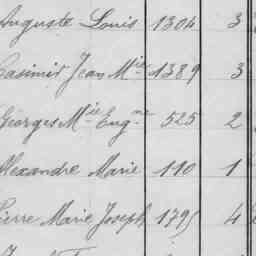 Auguste Louis 1304 3
Casimir Jean Mie 1389 3
Georges Mie Eugne 525 2
Alexandre Marie 110 1
Pierre Marie Joseph 1795 4